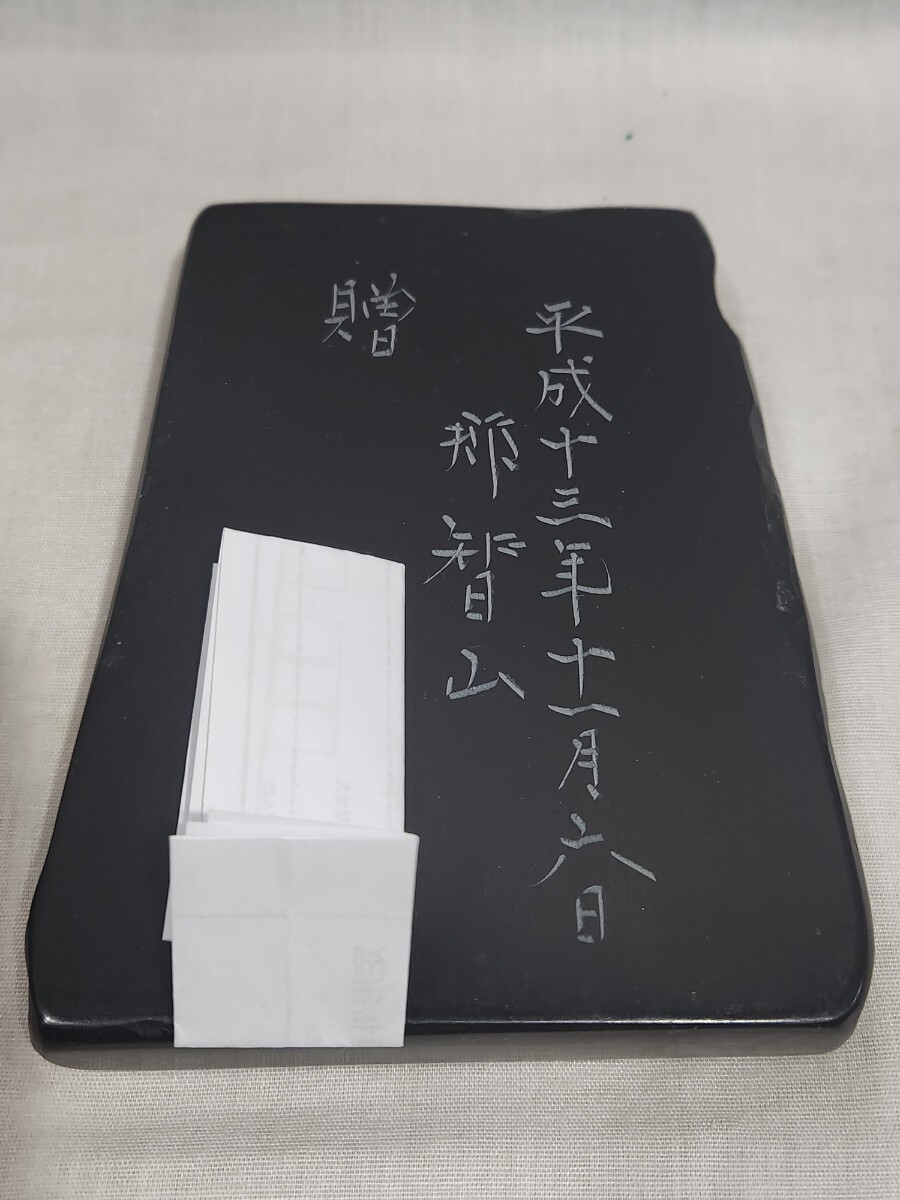 平成十三年十一月六日
那智山
贈